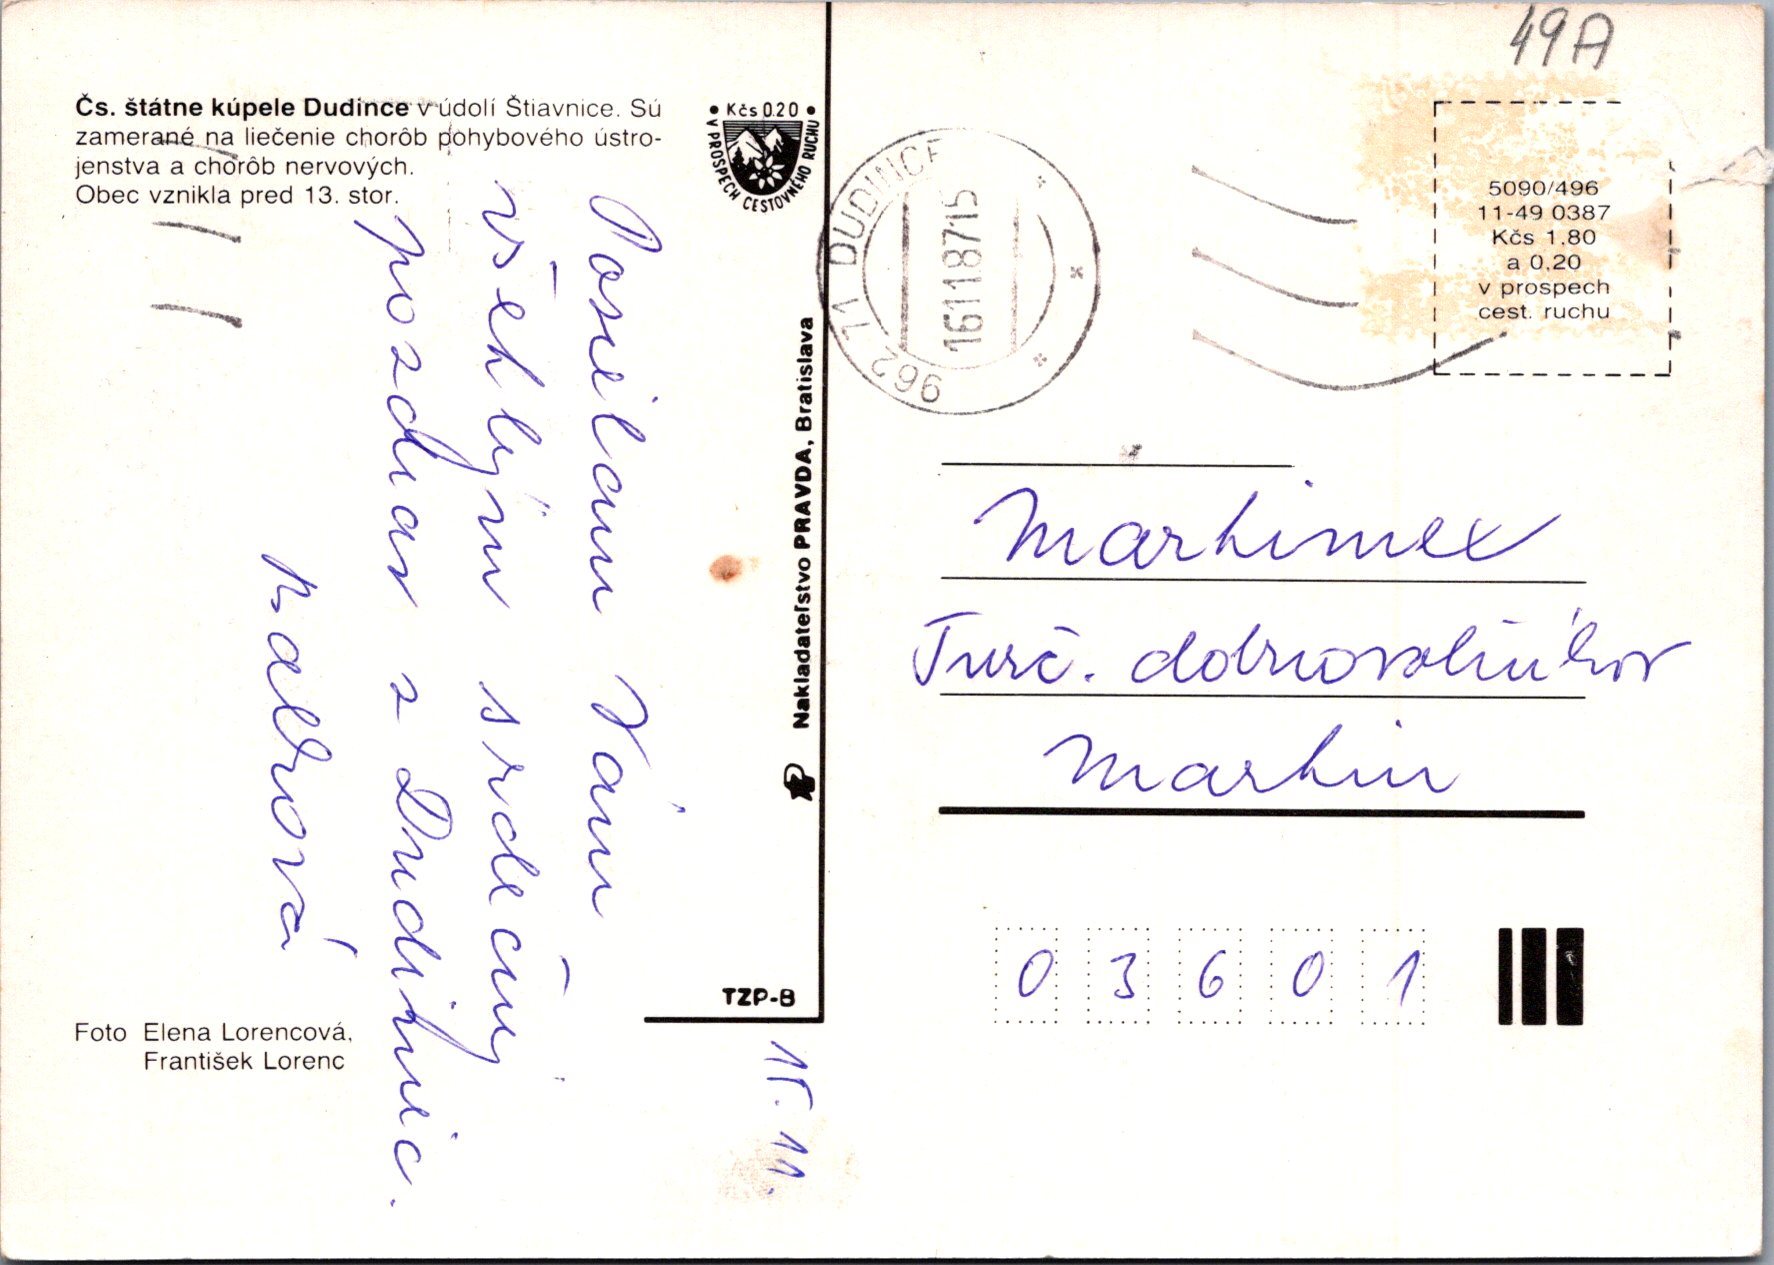 Čs. štátne kúpele Dudince v údolí Štiavnice. Sú
zamerané na liečenie chorôb pohybového ústro-
jenstva a chorôb nervových.
Obec vznikla pred 13. stor.
• Kčs 0.20 •
V PROSPECH CESTOVNÉHO RUCHU
Posielam Vám
všetkým srdečný
pozdrav z Dudiniec.
15. 11.
Foto Elena Lorencová,
František Lorenc
Nakladateľstvo PRAVDA, Bratislava
TZP-B
49A
962 71 DUDINCE
16.11.87 15
5090/496
11-49 0387
Kčs 1.80
a 0.20
v prospech
cest. ruchu
Martimex
Turč. dobrovoľníkov
Martin
03601